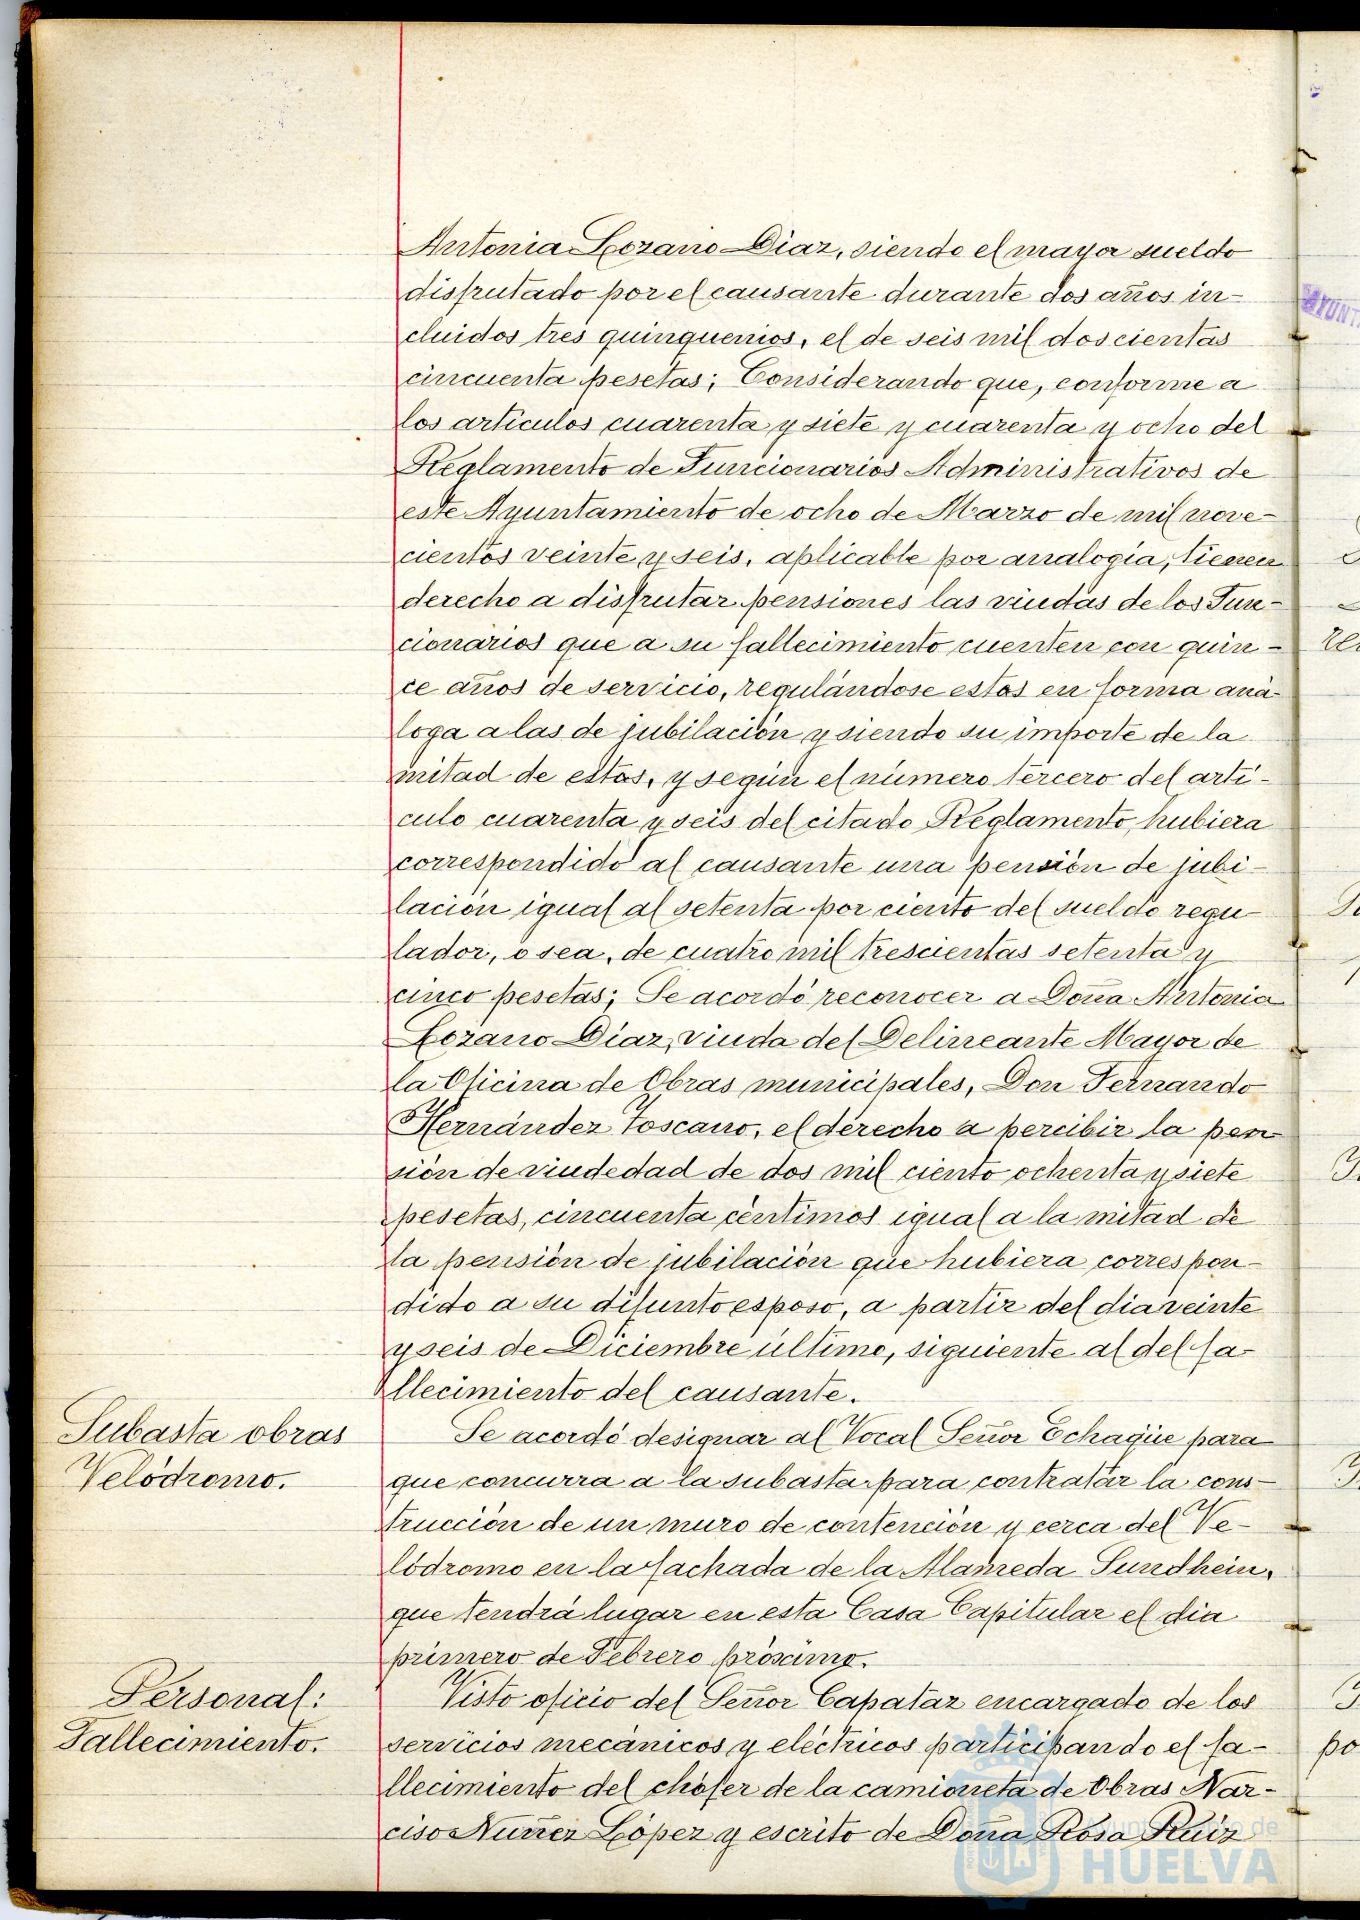 Antonia Lozano Diaz, siendo el mayor sueldo
disfrutado por el causante durante dos años in-
cluidos tres quinquenios, el de seis mil doscientas
cincuenta pesetas; Considerando que, conforme a
los artículos cuarenta y siete y cuarenta y ocho del
Reglamento de Funcionarios Administrativos de
este Ayuntamiento de ocho de Marzo de mil nove-
cientos veinte y seis, aplicable por analogía, tienen
derecho a disfrutar pensiones las viudas de los Fun-
cionarios que a su fallecimiento cuenten con quin-
ce años de servicio, regulándose estas en forma aná-
loga a las de jubilación y siendo su importe de la
mitad de estas, y según el número tercero del artí-
culo cuarenta y seis del citado Reglamento, hubiera
correspondido al causante una pensión de jubi-
lación igual al setenta por ciento del sueldo regu-
lador, o sea, de cuatro mil trescientas setenta y
cinco pesetas; Se acordó reconocer a Doña Antonia
Lozano Díaz, viuda del Delineante Mayor de
la Oficina de Obras municipales, Don Fernando
Hernández Toscano, el derecho a percibir la pen-
sión de viudedad de dos mil ciento ochenta y siete
pesetas, cincuenta céntimos igual a la mitad de
la pensión de jubilación que hubiera correspon-
dido a su difunto esposo, a partir del dia veinte
y seis de Diciembre último, siguiente al del fa-
llecimiento del causante.
Subasta obras
Velódromo.
Se acordó designar al Vocal Señor Echagüe para
que concurra a la subasta para contratar la cons-
trucción de un muro de contención y cerca del Ve-
lódromo en la fachada de la Alameda Sundhein,
que tendrá lugar en esta Casa Capitular el dia
primero de Febrero próximo.
Personal:
Fallecimiento.
Visto oficio del Señor Capataz encargado de los
servicios mecánicos y eléctricos participando el fa-
llecimiento del chófer de la camioneta de Obras Nar-
ciso Nuñez López y escrito de Doña Rosa Ruiz
Ayuntamiento de
HUELVA